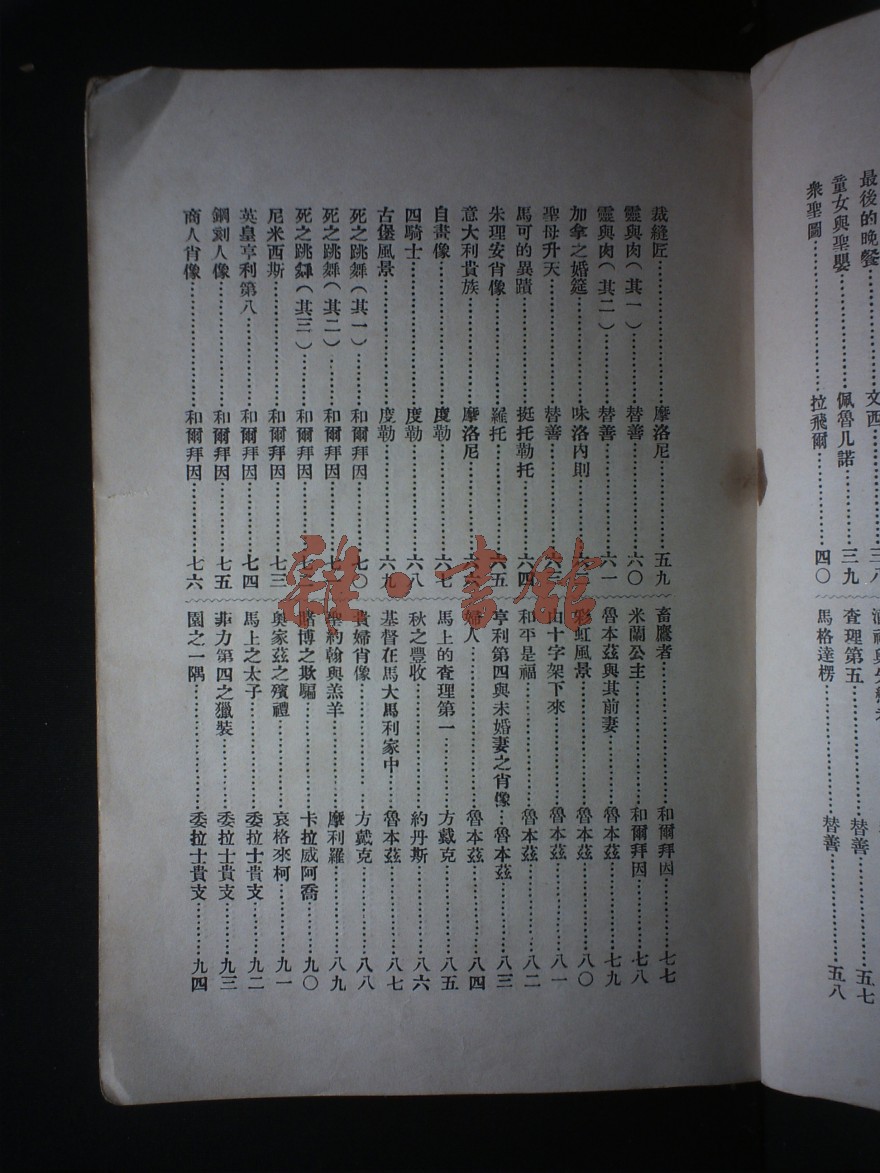 最後的晚餐……文西……三八
童女與聖嬰……佩魯几諾……三九
衆聖圖……拉飛爾……四〇
查理第五……替善……五七
馬格達楞……替善……五八
裁縫匠……摩洛尼……五九
靈與肉(其一)……替善……六〇
靈與肉(其二)……替善……六一
加拿之婚筵……味洛內則……六
聖母升天……替善……六
馬可的異蹟……挺托勒托……六四
朱理安肖像……羅托……六五
意大利貴族……摩洛尼……六六
自畫像……度勒……六七
四騎士……度勒……六八
古堡風景……度勒……六九
死之跳舞(其一)……和爾拜因……七〇
死之跳舞(其二)……和爾拜因……七
死之跳舞(其三)……和爾拜因……七
尼米西斯……和爾拜因……七三
英皇亨利第八……和爾拜因……七四
鋼刻人像……和爾拜因……七五
商人肖像……和爾拜因……七六
畜鷹者……和爾拜因……七七
米蘭公主……和爾拜因……七八
魯本茲與其前妻……魯本茲……七九
彩虹風景……魯本茲……八〇
由十字架下來……魯本茲……八一
和平是福……魯本茲……八二
亨利第四與未婚妻之肖像……魯本茲……八三
婦人……魯本茲……八四
馬上的查理第一……方戴克……八五
秋之豐收……約丹斯……八六
基督在馬大馬利家中……魯本茲……八七
貴婦肖像……方戴克……八八
聖約翰與羔羊……摩利羅……八九
賭博之欺騙……卡拉威阿喬……九〇
奧家茲之殯禮……哀格來柯……九一
馬上之太子……委拉士貴支……九二
菲力第四之獵裝……委拉士貴支……九三
園之一隅……委拉士貴支……九四
雜·書館